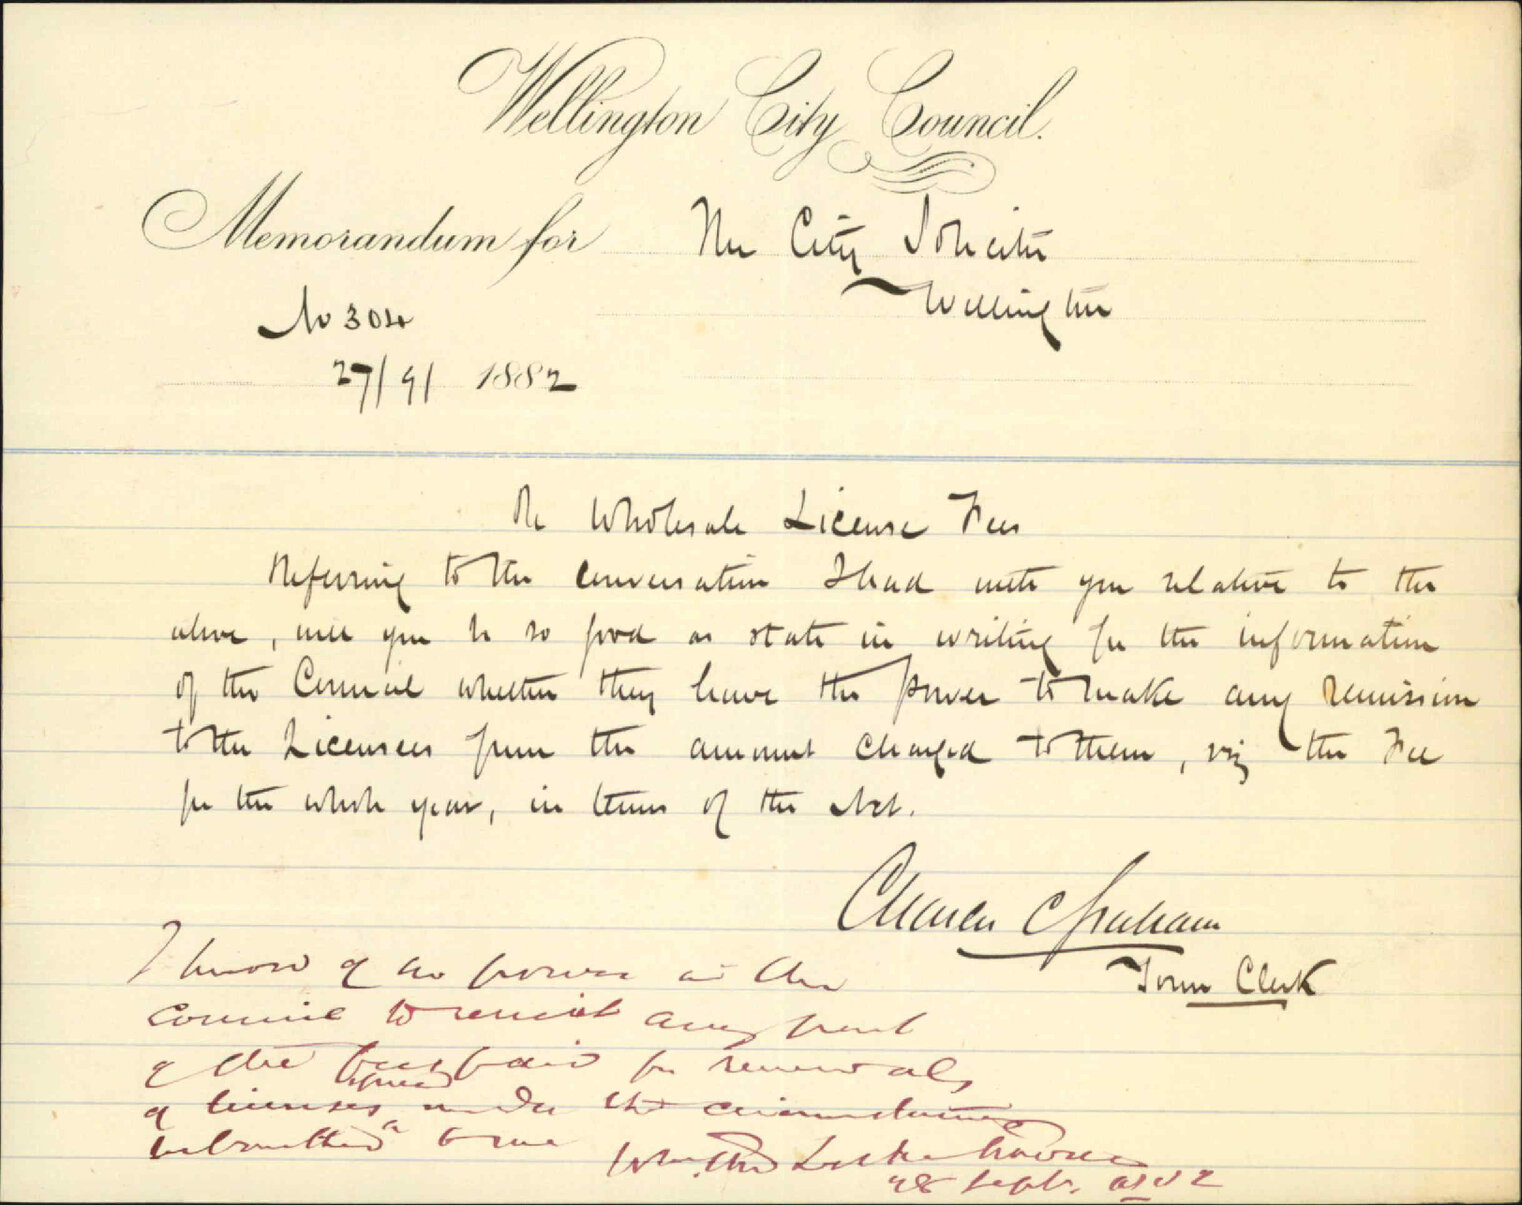 Wellington City Council.
Memorandum for The City Solicitor
Wellington
No 304
27/9/ 1882
Re Wholesale License Fees
Referring to the conversation I had with you relative to the
above, will you be so good as state in writing for the information
of the Council whether they have the power to make any remission
to the Licensees from the amount charged to them, viz the Fee
for the whole year, in terms of the Act.
Charles C Graham
Town Clerk
I know of no power in the
Council to remit any part
of the fees paid for renewals
of licenses under the circumstances
submitted to me
28 Sept. 1882